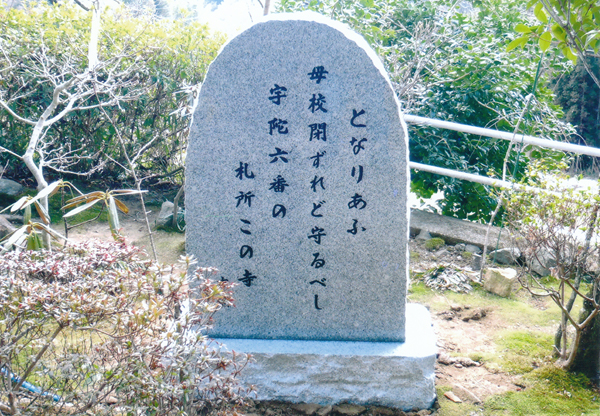 となりあふ
母校閉ずれど守るべし
宇陀六番の
札所この寺